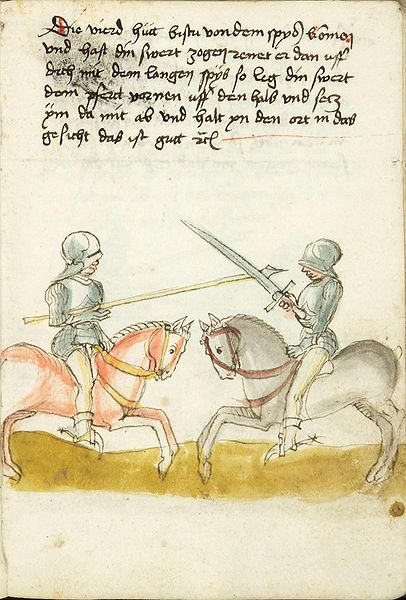 Die vierd hütt bistu von dem spyß kömen
vnd hast din swert zogen rennet er dan vff
dich mit dem langen spyß so leg din swert
dem pferd vornen vff den hals vnd setz
ym da mit ab vnd halt yn den ort in das
gesicht das ist gutt